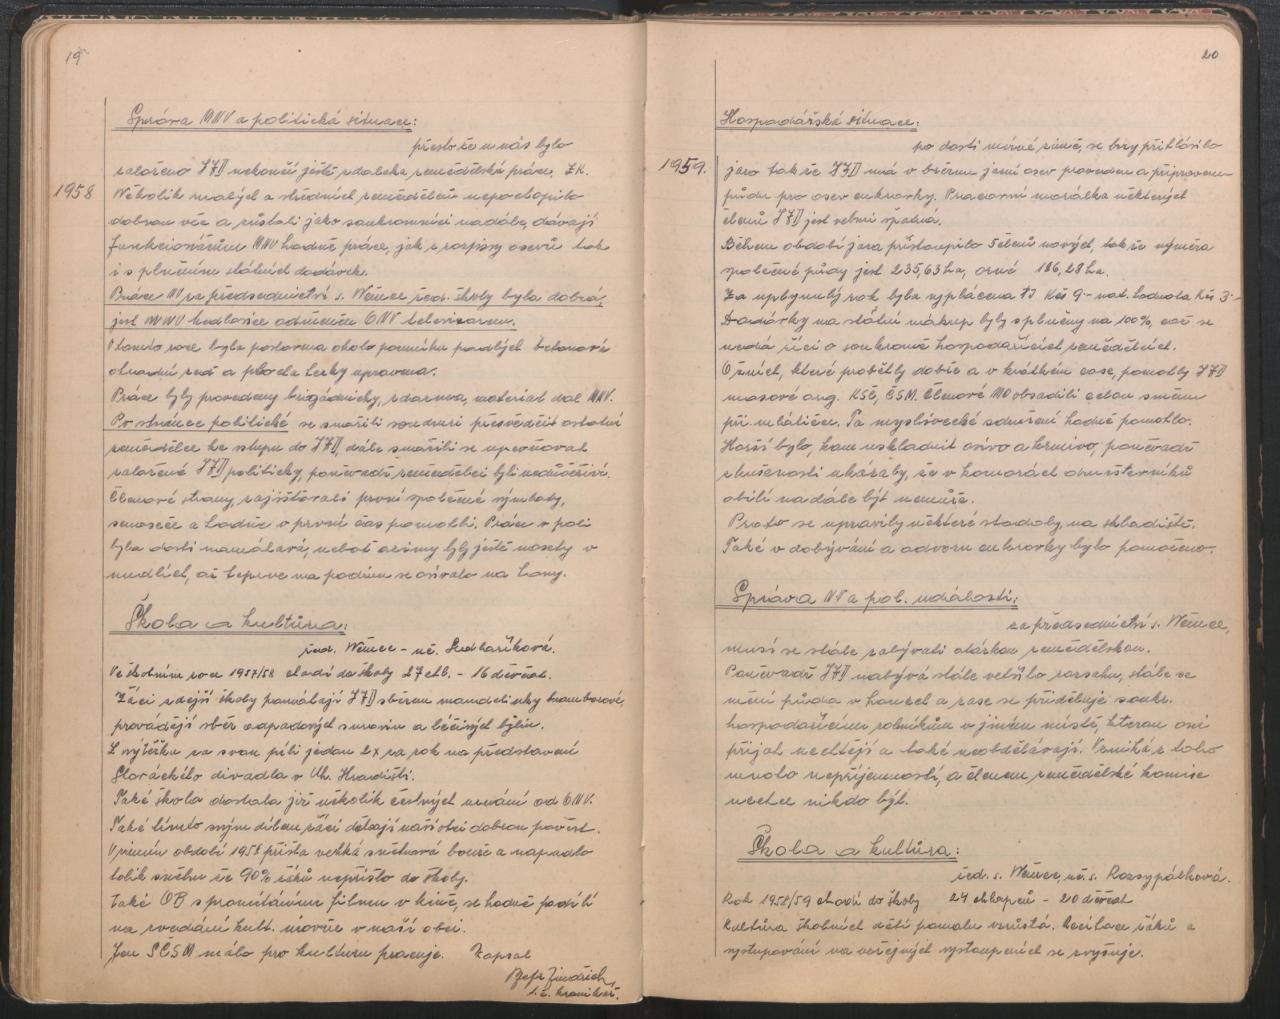 19
Správa MNV a politická situace:
přesto že u nás bylo
1958
založeno JZD nekončí ještě zdaleka zemědělská práce. ZK.
Několik malých a středních zemědělců nepochopilo
dobrou věc a zůstali jako soukromníci nadále, dávají
funkcionářům MNV hodně práce, jak s rozpisy osevů tak
i s plněním státních dodávek.
Práce NV za předsednictví s. Němce řed. školy byla dobrá,
jest MNV odměněn ONV televizorem.
V tomto roce byla postavena okolo pomníku padlých betonová
ohradní zeď a plocha hezky upravena.
Práce byly provedeny brigádnicky, zdarma, materiál dal MNV.
Po stránce politické se snažili soudruzi přesvědčit ostatní
zemědělce ke vstupu do JZD, dále snažili se upevňovat
založené JZD politicky, poněvadž zemědělci byli nedůvěřiví.
Členové strany, zajišťovali první společné výmlaty,
senoseče a hodně v první čas pomohli. Práce v poli
byla dosti namáhavá, neboť ozimy byly ještě nasety v
nudlích, až teprve na podzim se osívalo na hony.
Škola a kultura:
řed. Němec - uč. Sedlaříková.
Ve školním roce 1957/58 chodí do školy 27 chl. - 16 děvčat.
Žáci zdejší školy pomáhají JZD sběrem mandelinky bramborové,
provádějí sběr odpadových surovin a léčivých bylin.
Z výtěžku za svou píli jedou 2x za rok na představení
Slováckého divadla v Uh. Hradišti.
Také škola dostala již několik čestných uznání od ONV.
Také tímto svým dílem žáci dělají naší obci dobrou pověst.
V zimním období 1958 přišla velká sněhová bouře a napadlo
tolik sněhu že 90% žáků nepřišlo do školy.
Také OB s promítáním filmu v kině, se hodně podílí
na zvedání kult. úrovně v naší obci.
Jen SČSM málo pro kulturu pracuje. Zapsal
Jindřich,
t.č. kronikář.
20
Hospodářská situace:
po dosti mírné zimě, se brzy přihlásilo
1959.
jaro takže JZD má v březnu jarní osev proveden a připravenu
půdu pro osev cukrovky. Pracovní morálka některých
členů JZD jest velmi špatná.
Během období jara přistoupilo 5 členů nových, takže výměra
společné půdy jest 235,63 ha, orné 186,28 ha.
Za uplynulý rok byla vyplácena TJ Kčs 9.- nat. hodnota Kčs 3.-
Dodávky na státní nákup byly splněny na 100%, což se
nedá říci o soukromě hospodařících zemědělcích.
O žních, které proběhly dobře a v krátkém čase, pomohly JZD
masové org. KSČ, ČSM. Členové PO obsadili celou směnu
při mlátičce. Ta myslivecké sdružení hodně pomohlo.
Horší bylo, kam uskladnit osivo a krmivo, poněvadž
zkušenosti ukázaly, že v komorách družstevníků
obilí nadále být nemůže.
Proto se upravily některé stodoly, na skladiště.
Také v dobývání a odvozu cukrovky bylo pomoženo.
Správa NV a pol. události:
za předsednictví s. Němce,
musí se stále zabývati otázkou zemědělskou.
Poněvadž JZD nabývá stále většího rozsahu, stále se
mění půda v honech a zase se přiděluje soukr.
hospodařícím rolníkům v jiném místě, kterou oni
přijat nechtějí a také neobdělávají. Vzniká z toho
mnoho nepříjemností, a členem zemědělské komise
nechce nikdo být.
Škola a kultura:
řed. s. Němec, uč. s. Rozsypálková.
Rok 1958/59 chodí do školy 24 chlapců - 20 děvčat
Kultura školních dětí pomalu vzrůstá. Recitace žáků a
vystupování na veřejných vystoupeních se zvyšuje.